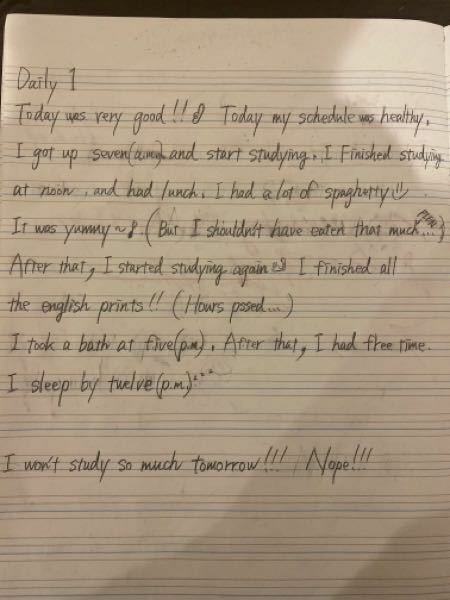 Daily 1
Today was very good!! Today my schedule was healthy.
I got up seven(a.m.) and start studying. I Finished studying
at noon. and had lunch. I had a lot of spaghetty
It was yummy~ (But I shouldn't have eaten that much...)
After that, I started studying again I finished all
the english prints!! (Hours pssed...)
I took a bath at five(p.m). After that, I had free time.
I sleep by twelve(p.m.)zzz
I won't study so much tomorrow!!! Nope!!!